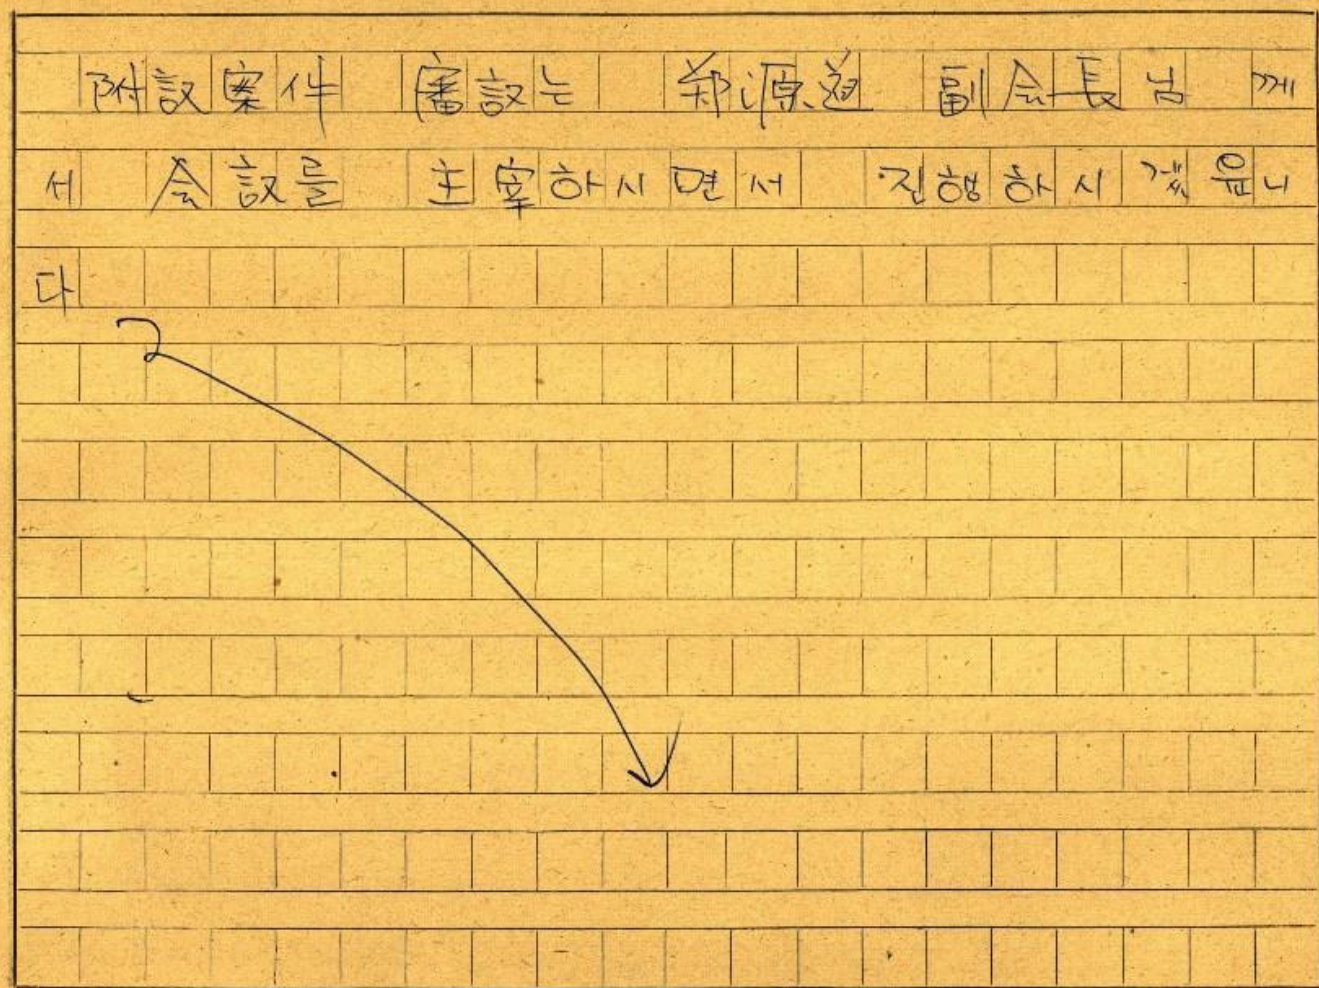 附議案件 審議는 鄭源道 副会長님 께
서 会議를 主宰하시면서 진행하시겠읍니
다